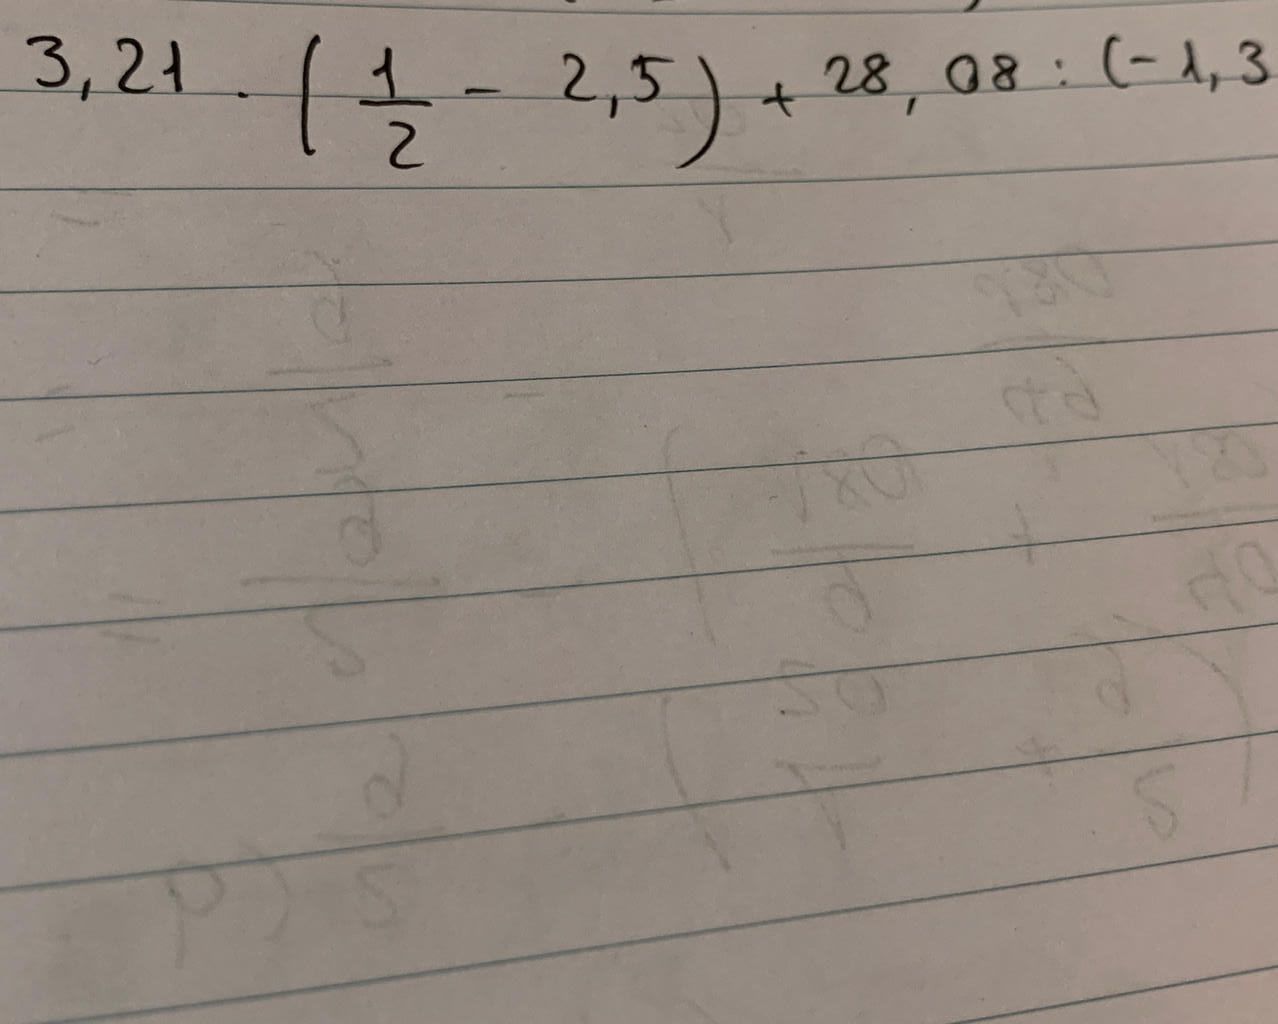 3,21 . ( 1/2 - 2,5 ) + 28,08 : (-1,3